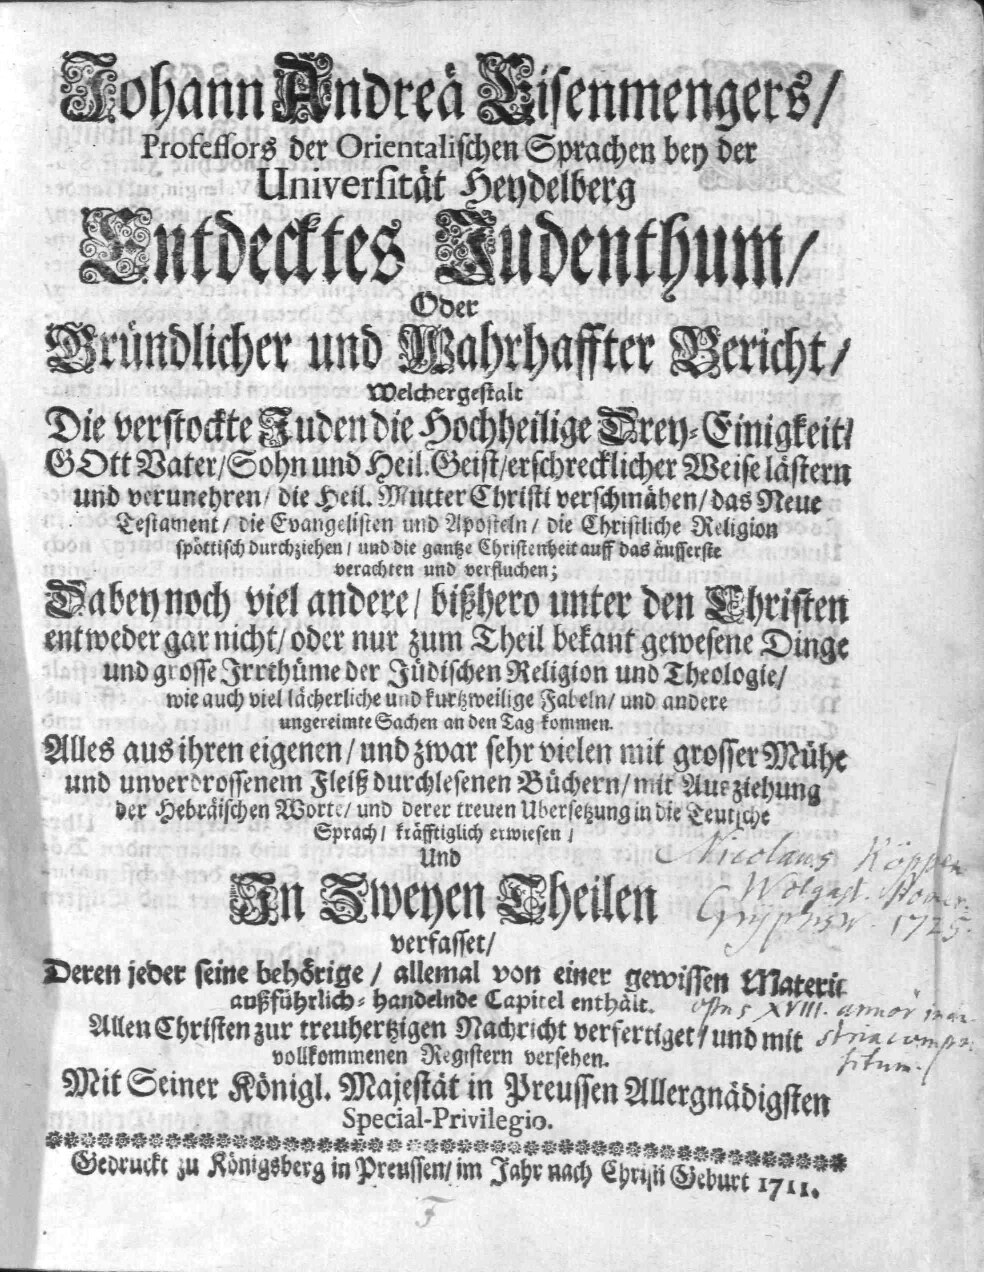 Johann Andreä Eisenmengers/
Professors der Orientalischen Sprachen bey der
Universität Heydelberg
Entdecktes Judenthum/
Oder
Gründlicher und Wahrhaffter Bericht/
Welchergestalt
Die verstockte Juden die Hochheilige Drey-Einigkeit/
GOtt Vater/ Sohn und Heil. Geist/ erschrecklicher Weise lästern
und verunehren/ die Heil. Mutter Christi verschmähen/ das Neue
Testament/ die Evangelisten und Aposteln/ die Christliche Religion
spöttisch durchziehen/ und die gantze Christenheit auff das äusserste
verachten und verfluchen;
Dabey noch viel andere/ bißhero unter den Christen
entweder gar nicht/ oder nur zum Theil bekant gewesene Dinge
und grosse Irrthüme der Jüdischen Religion und Theologie/
wie auch viel lächerliche und kurtzweilige Fabeln/ und andere
ungereimte Sachen an den Tag kommen.
Alles aus ihren eigenen/ und zwar sehr vielen mit grosser Mühe
und unverdrossenem Fleiß durchlesenen Büchern/ mit Ausziehung
der Hebräischen Worte/ und derer treuen Ubersetzung in die Teutsche
Sprach/ kräfftiglich erwiesen/
Und
In Zweyen Theilen
verfasset/
Deren jeder seine behörige/ allemal von einer gewissen Materie
außführlich-handelnde Capitel enthält.
Allen Christen zur treuhertzigen Nachricht verfertiget/ und mit
vollkommenen Registern versehen.
Mit Seiner Königl. Majestät in Preussen Allergnädigsten
Special-Privilegio.
Gedruckt zu Königsberg in Preussen/ im Jahr nach Christi Geburt 1711.
Nicolaus Köppen
Wolgast. Pomer.
1725.
XVIII. annor